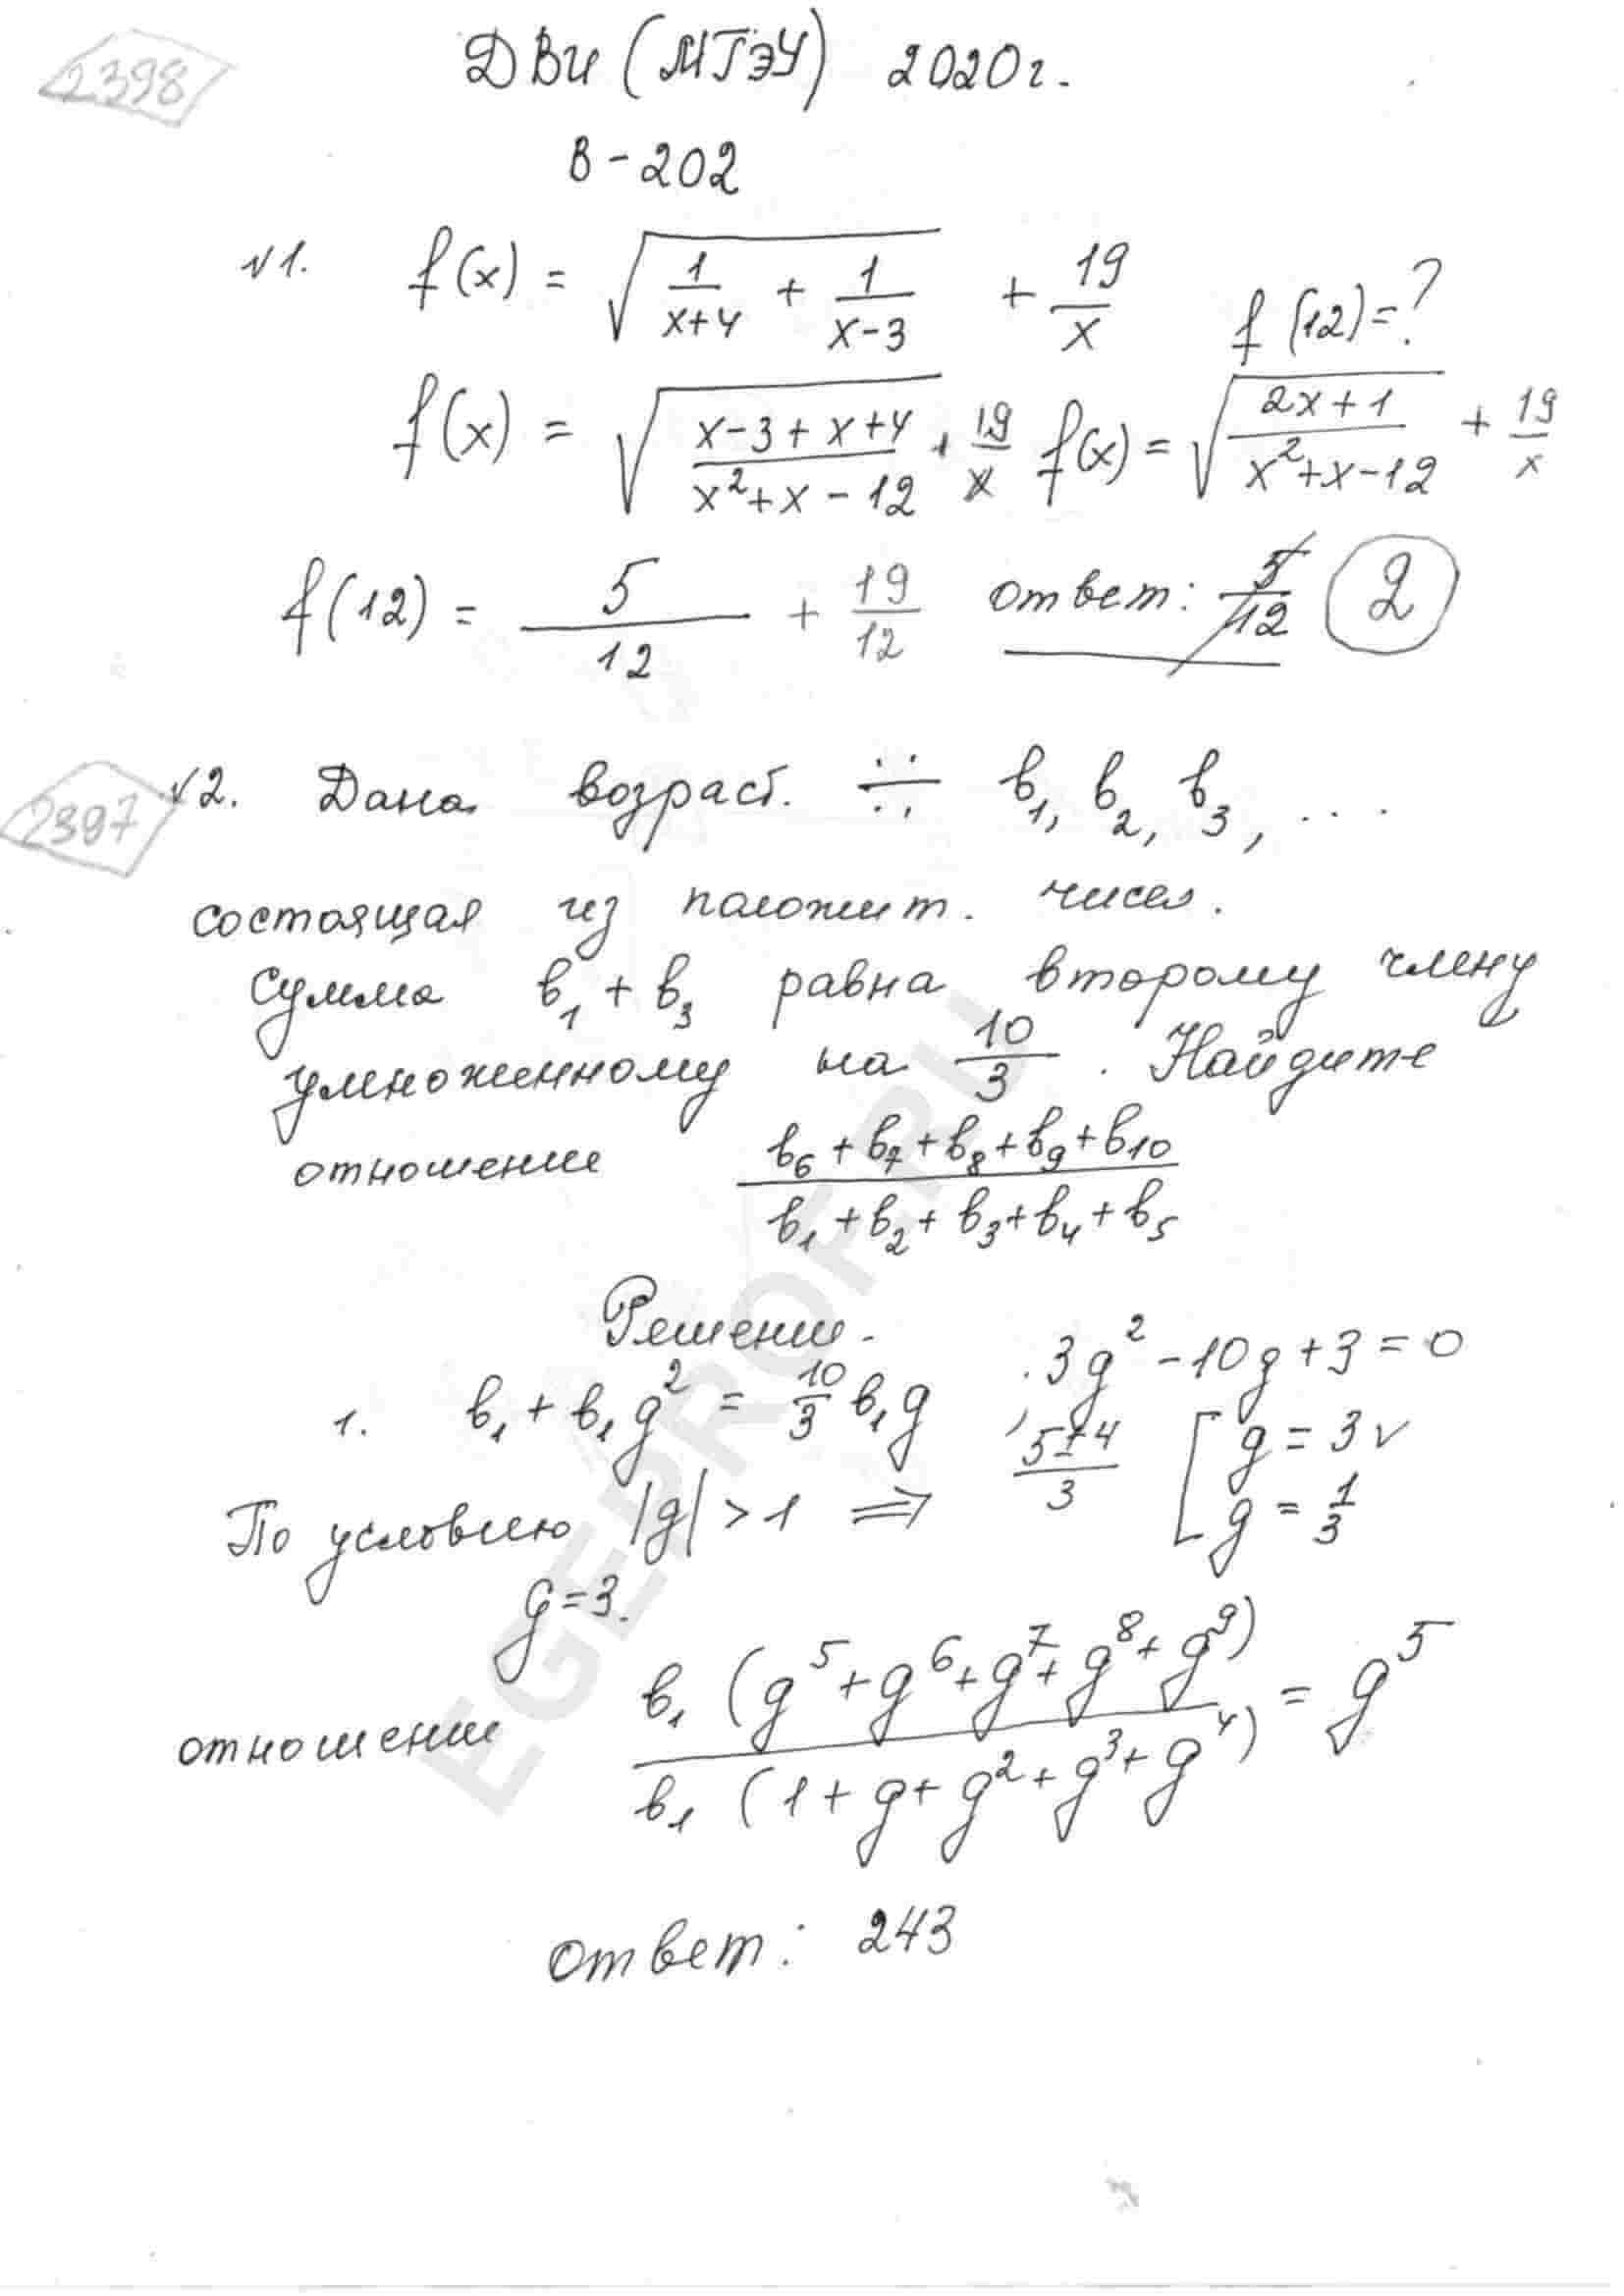 2398
ДВИ (МГЭУ) 2020г.
В-202
√1. f(x) = √(1/(x+4) + 1/(x-3)) + 19/x f(12)=?
f(x) = √((x-3+x+4)/(x²+x-12)) + 19/x f(x) = √((2x+1)/(x²+x-12)) + 19/x
f(12) = 5/12 + 19/12 ответ: 5/12 2
2397
√2. Дана возраст. ∺ b₁, b₂, b₃, ...
состоящая из положит. чисел.
Сумма b₁ + b₃ равна второму члену
умноженному на 10/3. Найдите
отношение (b₆+b₇+b₈+b₉+b₁₀)/(b₁+b₂+b₃+b₄+b₅)
Решение.
1. b₁+b₁g² = 10/3 b₁g ; 3g²-10g+3=0
(5±4)/3 [g=3 ✓
g=1/3
По условию |g|>1 ⇒
g=3.
отношение b₁(g⁵+g⁶+g⁷+g⁸+g⁹)/b₁(1+g+g²+g³+g⁴) = g⁵
ответ: 243
EGEPROF.RU